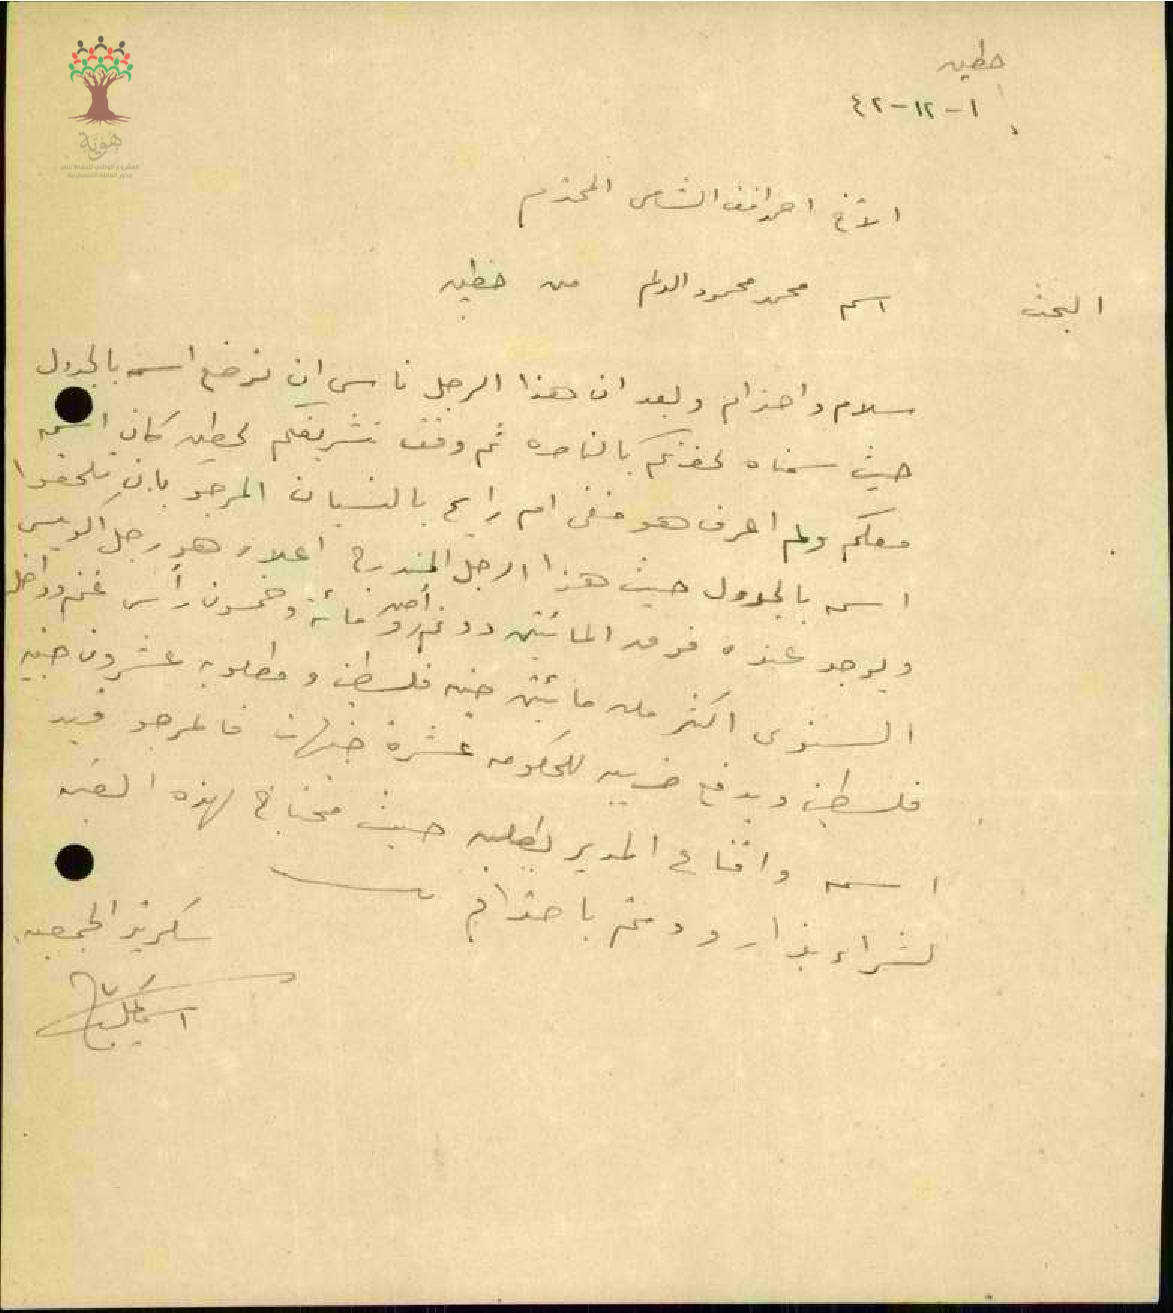 هوية
المشروع الوطني للحفاظ على
جذور العائلة الفلسطينية
حطين
١-١٢-٤٢
الاخ احمد افندي الشاعر المحترم
البحث اسم محمد محمود من حطين
سلام واحترام وبعد ان هذا الرجل ناسي ان نوضع اسمه بالجدول
حيث سمناه لحضرتكم بالناصره ثم وقت تشريفكم لحطين كان اسمه
معكم ولم اعرف هو منفي ام رايح بالنسيان المرجو بان تلحقوا
اسمه بالجدول حيث هذا الرجل المندرج اعلاه هو رجل كويس
ويوجد عنده فوق المائتين دونم ارض ومائة وخمسون رأس غنم وداخله
السنوي اكثر من مائتين جنيه فلسطيني ومطلوبه عشرون جنيه
فلسطيني ويدفع ضريبه للحكومه عشرة جنيهات فالمرجو قيد
اسمه واقناع المدير بطلبه حيث محتاج لهذه القيمه
لشراء بذار ودمتم باحترام
سكرتير الجمعيه